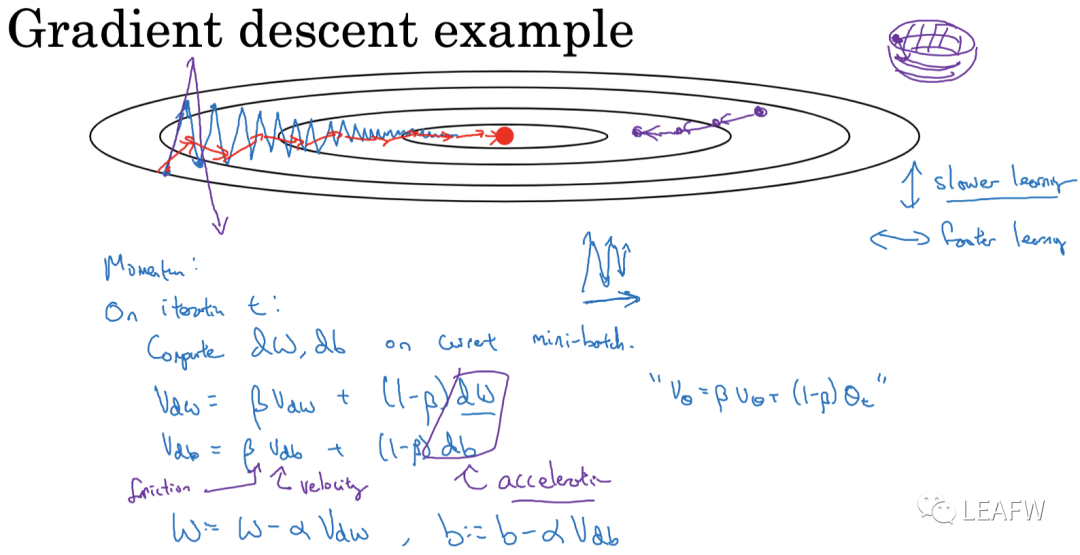 Gradient descent example
↕ slower learning
↔ faster learning
Momentum:
On iteration t:
Compute dW, db on current mini-batch.
V_dw = β V_dw + (1-β) dW
"V_θ = β V_θ + (1-β) θ_t"
V_db = β V_db + (1-β) db
friction velocity acceleration
W := W - α V_dw , b := b - α V_db
LEAFW